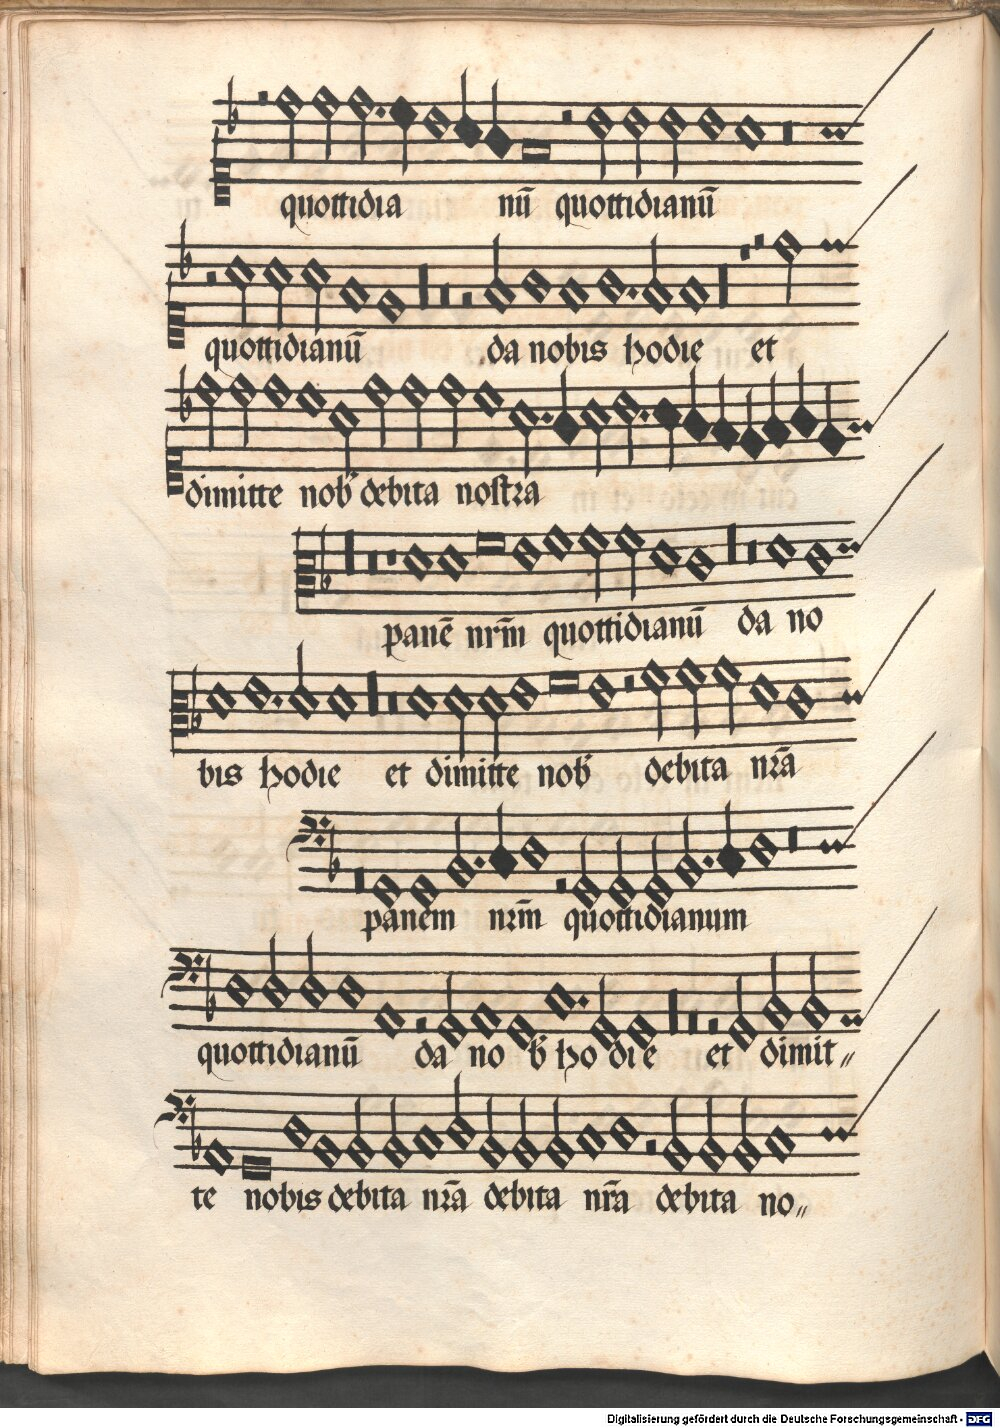 quottidia nū quottidianū
quottidianū da nobis hodie et
dimitte nob' debita nostra
panē nrm̄ quottidianū da no
bis hodie et dimitte nob' debita nrā
panem nrm̄ quottidianum
quottidianū da no b' ho die et dimit〃
te nobis debita nrā debita nrā debita no〃
Digitalisierung gefördert durch die Deutsche Forschungsgemeinschaft - DFG